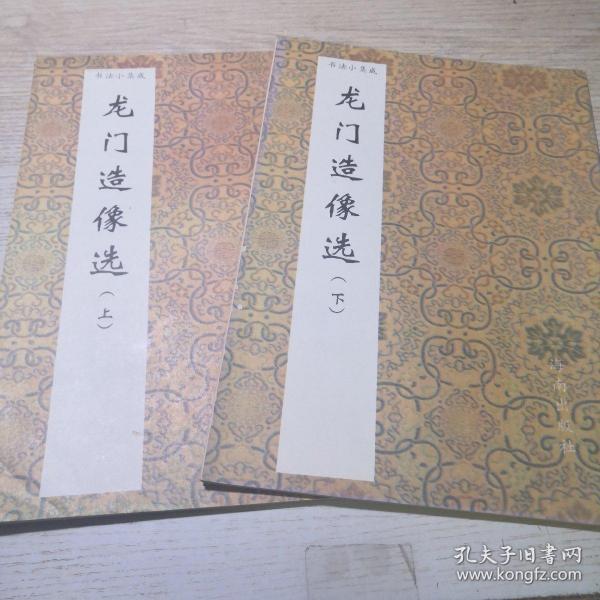 书法小集成
龙门造像选
（上）
书法小集成
龙门造像选
（下）
海南出版社
孔夫子旧书网
www.kongfz.com